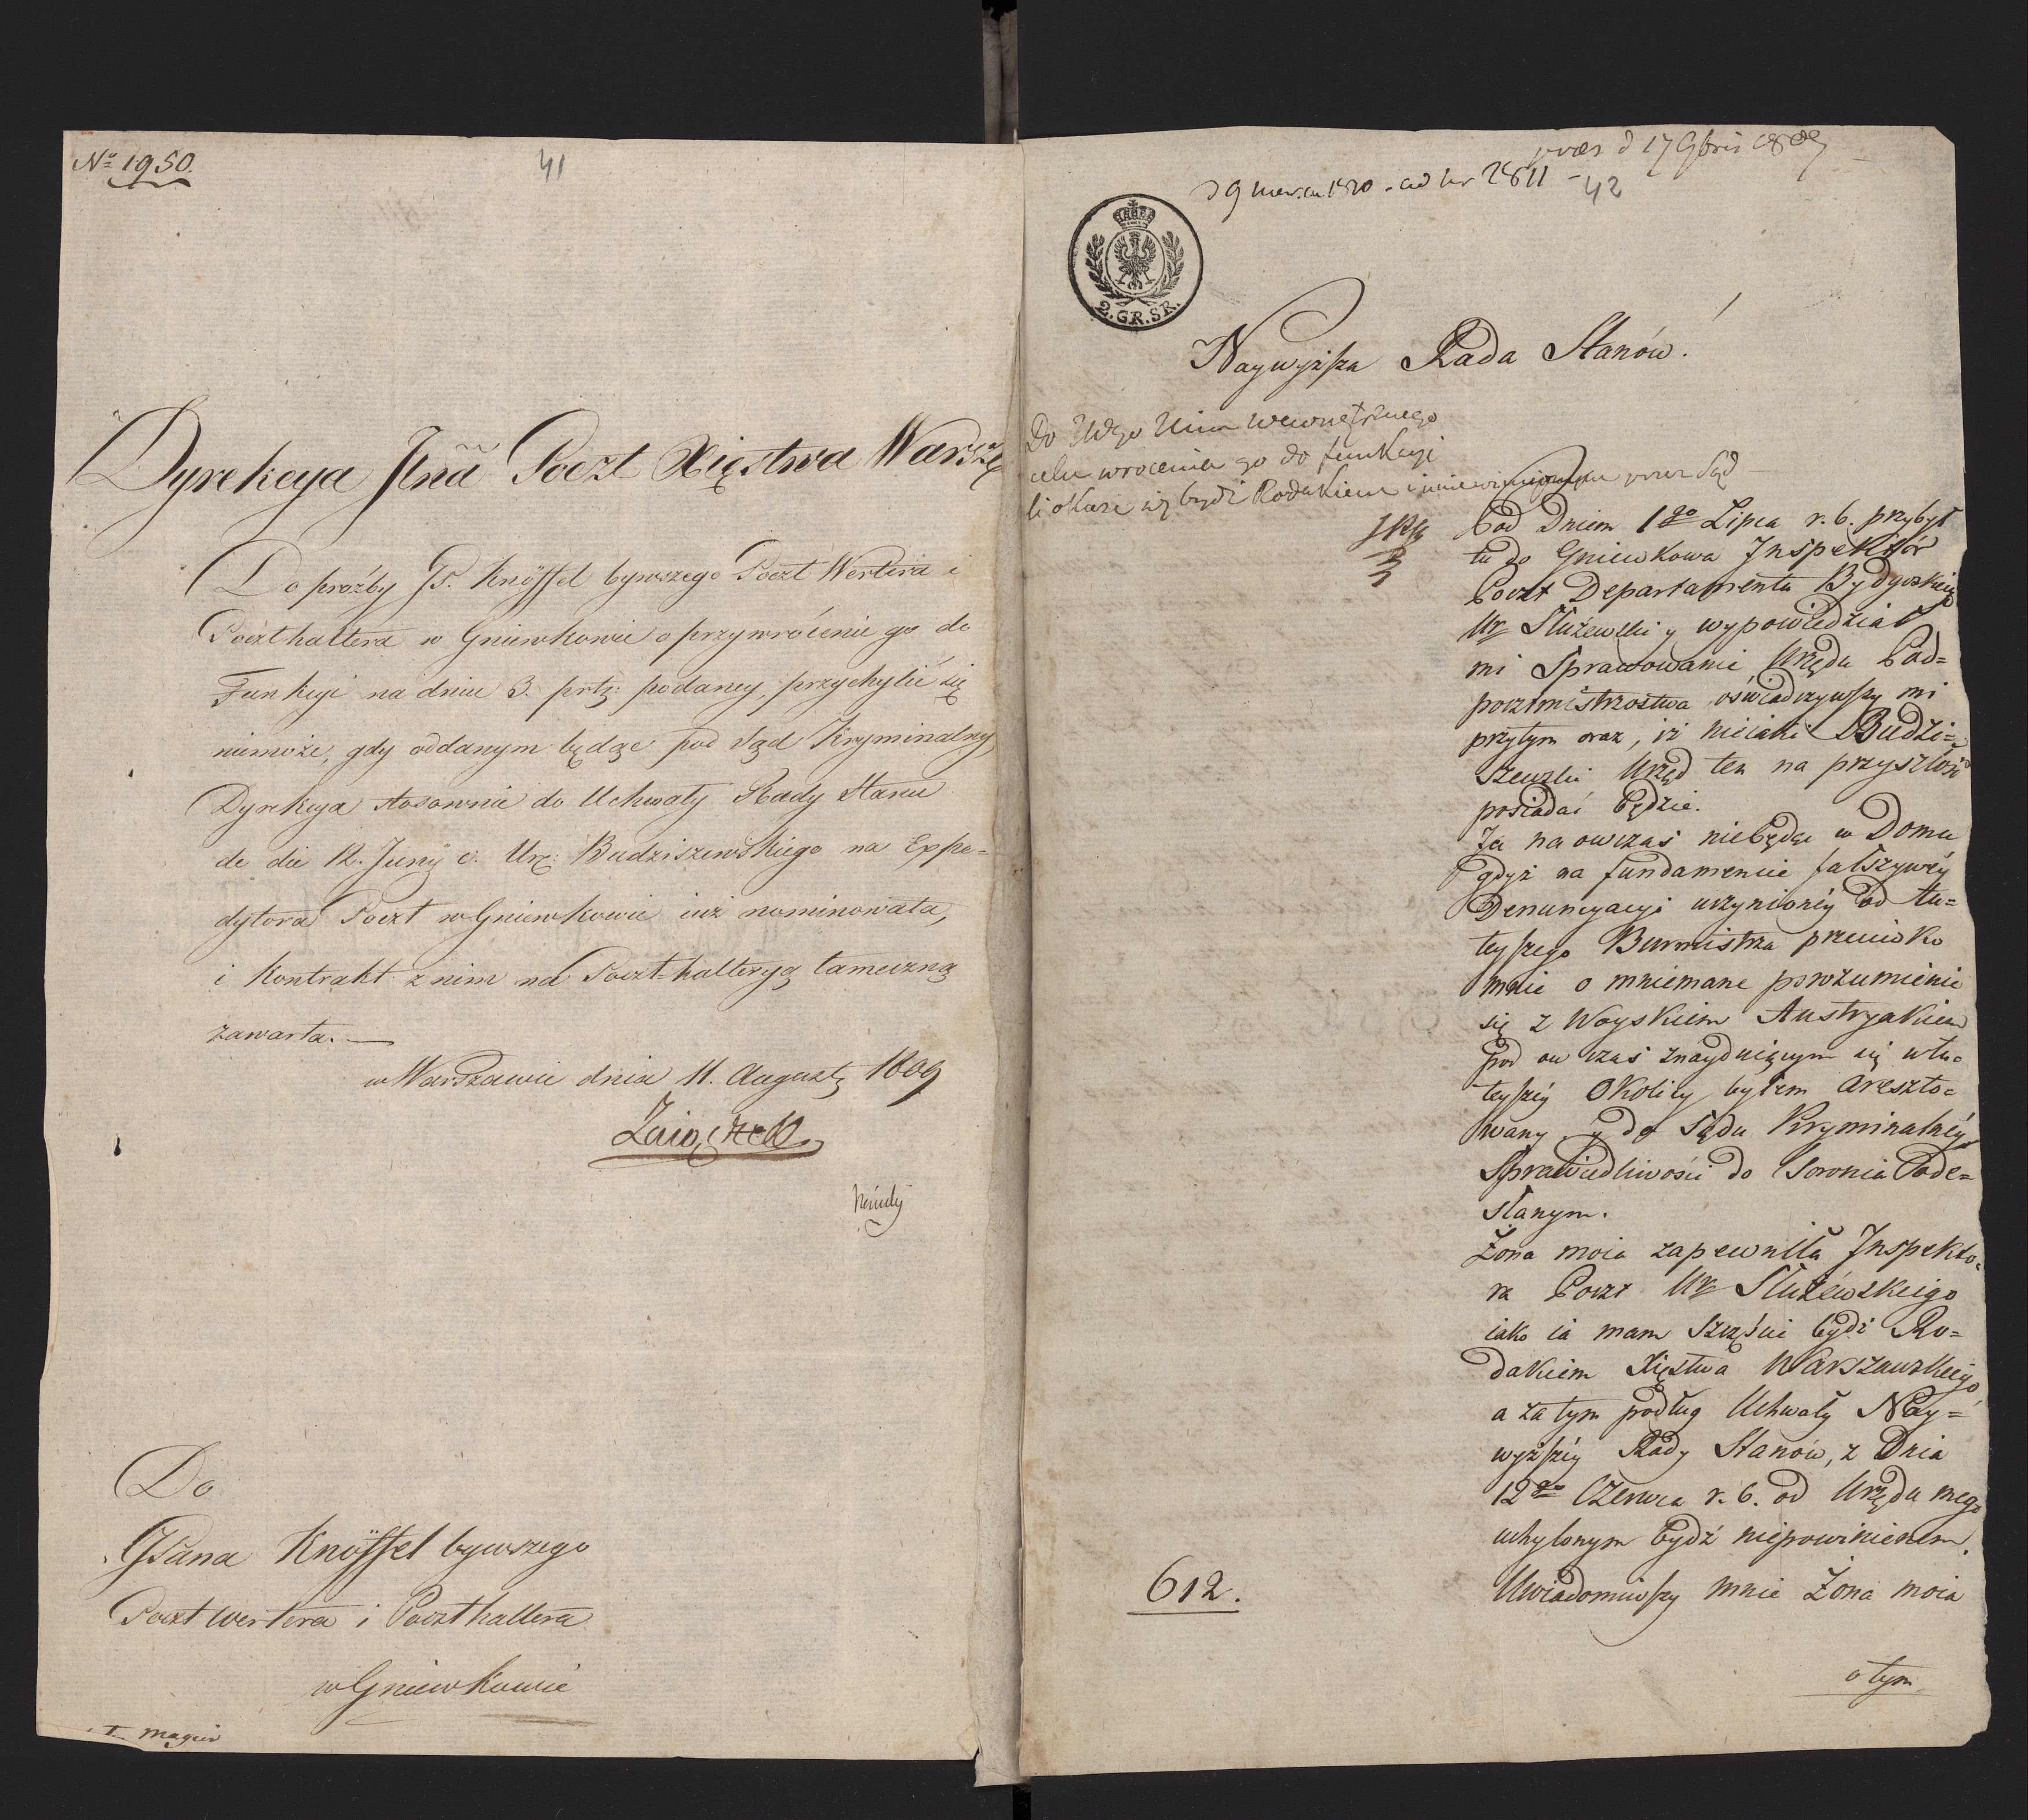 No 1950.
41
Dyrekcya Jlna Poczt Xięstwa Warszg
Do proźby JP. Knöffel bywszego Poczt Wertera i
Poczthaltera w Gniewkowie o przywrócenie go do
Funkcyi na dniu 3. prtz: podaney, przychylić się
niemoże, gdy oddanym będąc pod Sąd Kryminalny,
Dyrekcya stosownie do Uchwały Rady Stanu
de die 12. Juny c. Urz: Budziszewskiego na Expe=
dytora Poczt w Gniewkowie iuż nominowała,
i Kontrakt z nim na Poczt-halteryą tameczną
zawarła.—
w Warszawie dnia 11. August 1809
Zaiączek
Do
JPana Knöffel bywszego
Poczt Wertera i Poczthaltera
w Gniewkowie
præs d 17 9bris 1809
d 9 1810. ad nr 2811 -
42
2.GR.SR.
Naywyższa Rada Stanów!
Do Wewnętrznego
celu wrócenia go do funkcyi
li okaże się bydź Rodakiem i uniewinnionym przez Sąd
Pod Dniem 1go Lipca r. b. przybył
tu do Gniewkowa Inspektór
Poczt Departamentu Bydgoskiego
Ur Służewski y wypowiedział
mi Sprawowanie Urzędu Pod=
poczmistrzostwa oświadczywszy mi
przytym oraz, iż nieiaki Budzi=
szewski Urząd ten na przyszłość
posiadać będzie.
Ja na owczas niebędąc w Domu
gdyż na fundamencie fałszywéy
Denuncyacyi uczynionéy od tu=
teyszego Burmistrza przeciwko
mnie o mniemane porozumienie
się z Woyskiem Austryakiem
pod on czas znayduiącym się w tu=
teyszéy okolicy byłem areszto=
wany y do Sądu Kryminalnéy
Sprawiedliwości do Toronia Ode=
słanym.
Żona moia zapewniła Inspekto=
ra Poczt Ur Służéwskiego
iako ia mam szczęście bydź Ro=
dakiem Xięstwa Warszawskiego
a za tym podług Uchwały Nay=
wyższéy Rady Stanów, z Dnia
12go Czerwca r. b. od Urzędu mego
uchylonym bydź niepowinienem.
Uwiadomiwszy mnie Żona moia
612.
o tym